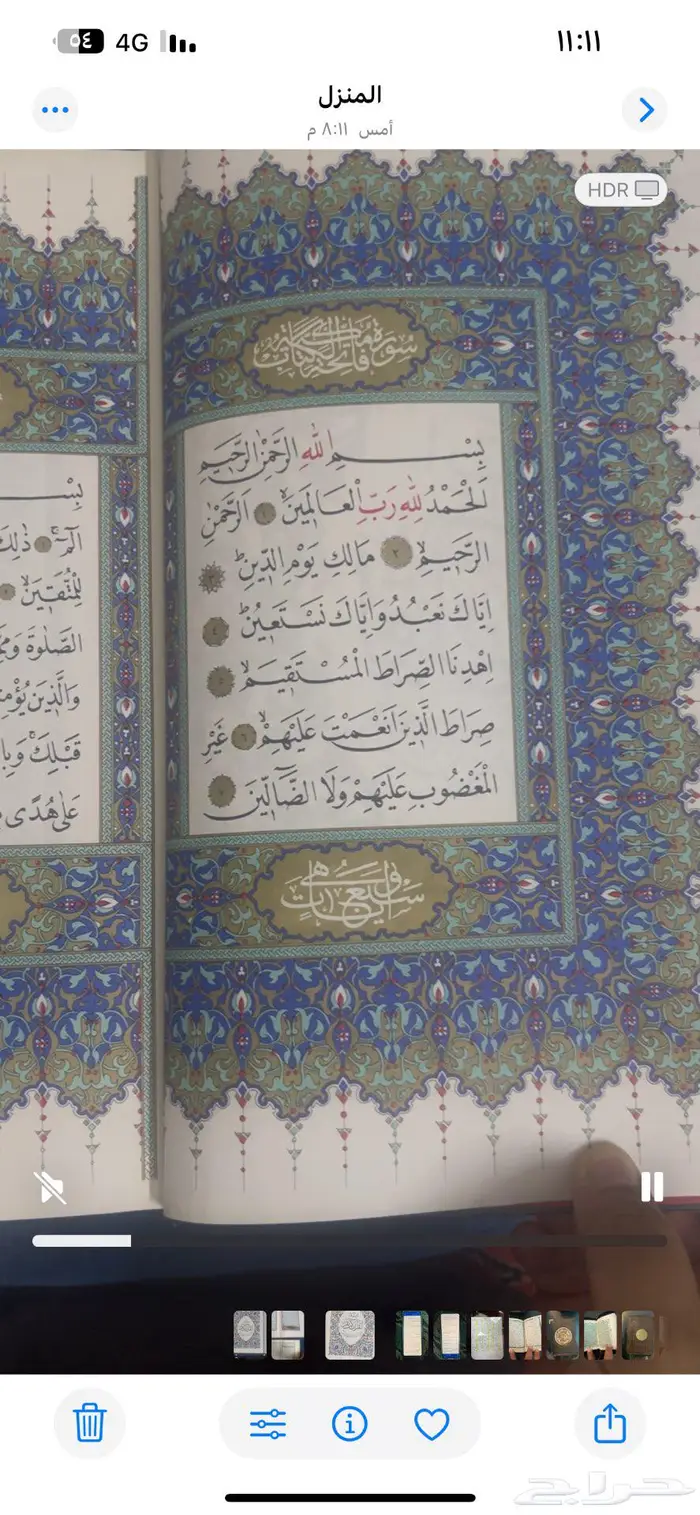 ١١:١١
4G
٥٤
المنزل
أمس ٨:١١ م
HDR
سورة فاتحة الكتاب مكية
بِسْمِ اللّٰهِ الرَّحْمٰنِ الرَّحِيمِ
اَلْحَمْدُ لِلّٰهِ رَبِّ الْعَالَمِينَ ١ اَلرَّحْمٰنِ
الرَّحِيمِ ٢ مَالِكِ يَوْمِ الدِّينِ ٣
اِيَّاكَ نَعْبُدُ وَاِيَّاكَ نَسْتَعِينُ ٤
اِهْدِنَا الصِّرَاطَ الْمُسْتَقِيمَ ٥
صِرَاطَ الَّذِينَ اَنْعَمْتَ عَلَيْهِمْ ٦ غَيْرِ
الْمَغْضُوبِ عَلَيْهِمْ وَلَا الضَّالِّينَ ٧
وهي سبع آيات
بِسْـ
الٓمٓ ١ ذٰلِكَ
لِلْمُتَّقِينَ
الصَّلٰوةَ
وَالَّذِينَ
قَبْلِكَ
عَلٰى هُدًى
حراج